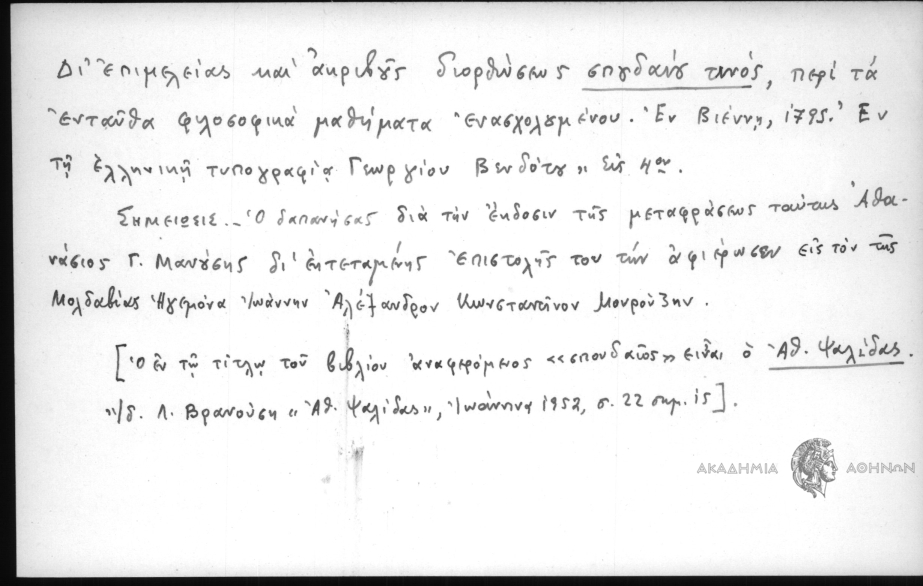 Δι' ἐπιμελείας καὶ ἀκριβοῦς διορθώσεως σπουδαίου τινός, περὶ τὰ
ἐνταῦθα φιλοσοφικὰ μαθήματα ἐνασχολουμένου. Ἐν Βιέννῃ, 1795. Ἐν
τῇ ἑλληνικῇ τυπογραφίᾳ Γεωργίου Βενδότου» εἰς 4ον.
Σημείωσις._ Ὁ δαπανήσας διὰ τὴν ἔκδοσιν τῆς μεταφράσεως ταύτης Ἀθα-
νάσιος Γ. Μανούσης δι' ἐκτεταμένης ἐπιστολῆς του τὴν ἀφιέρωσεν εἰς τὸν τῆς
Μολδαβίας Ἡγεμόνα Ἰωάννην Ἀλέξανδρον Κωνσταντῖνον Μουρούζην.
[Ὁ ἐν τῷ τίτλῳ τοῦ βιβλίου ἀναφερόμενος «σπουδαῖος» εἶναι ὁ Ἀθ. Ψαλίδας.
Ἴδ. Λ. Βρανούση «Ἀθ. Ψαλίδας», Ἰωάννινα 1952, σ. 22 σημ. 15].
ΑΚΑΔΗΜΙΑ ΑΘΗΝΩΝ